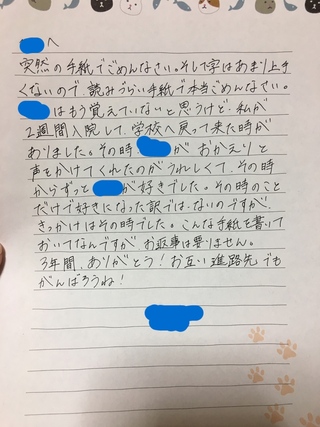 へ
突然の手紙でごめんなさい。そして字はあまり上手
くないので読みづらい手紙で本当ごめんなさい。
はもう覚えていないと思うけど、私が
2週間入院して、学校へ戻って来た時が
ありました。その時、がおかえりと
声をかけてくれたのがうれしくて、その時
からずっとが好きでした。その時のこと
だけで好きになった訳ではないのですが、
きっかけはその時でした。こんな手紙を書いて
おいてなんですがお返事は要りません。
3年間、ありがとう!お互い進路先でも
がんばろうね!